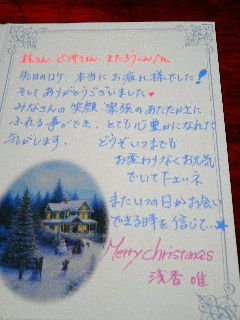 先日のロケ 本当にお疲れ様でした!
そして ありがとうございました♥
みなさんの笑顔、家族のあたたかさに
ふれる事ができ、とても心豊かになれた
気がします。 どうぞいつまでも
お変わりなくお元気
でいて下さいネ
またいつの日かお会い
できる時を信じて…★
Merry christmas
浅香 唯